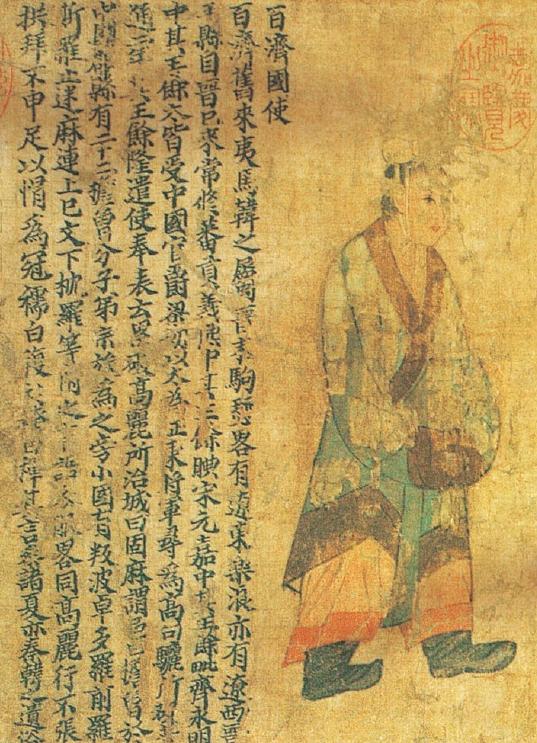 百濟國使
百濟舊來夷馬韓之屬晉末駒驪畧有遼東樂浪亦有遼西晉
平縣自晉已來常修蕃貢義熙中其王餘腆宋元嘉中其王餘毗齊永明
中其王餘太皆受中國官爵梁初以太為征東將軍尋為高句驪所破
通二年王餘隆遣使奉表云累破高麗所治城曰固麻謂邑曰檐魯於
中國郡縣有二十二檐魯分子弟宗族為之旁小國有叛波卓多羅前羅
斯羅止迷麻連上巳文下枕羅等附之言語衣服畧同高麗行不張
拱拜不申足以帽為冠襦曰複衫袴曰褌其言參諸夏亦秦韓之遺俗